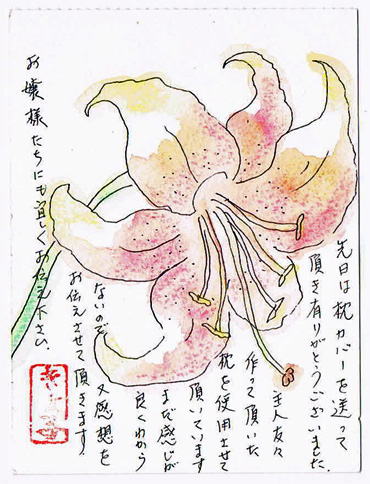 先日は枕カバーを送って
頂き有りがとうございました。
主人友々
作って頂いた
枕を使用させて
頂いています
まだ感じが
良くわから
ないので
又感想を
お伝えさせて頂きます。
お嬢様たちにも宜しくお伝え下さい。